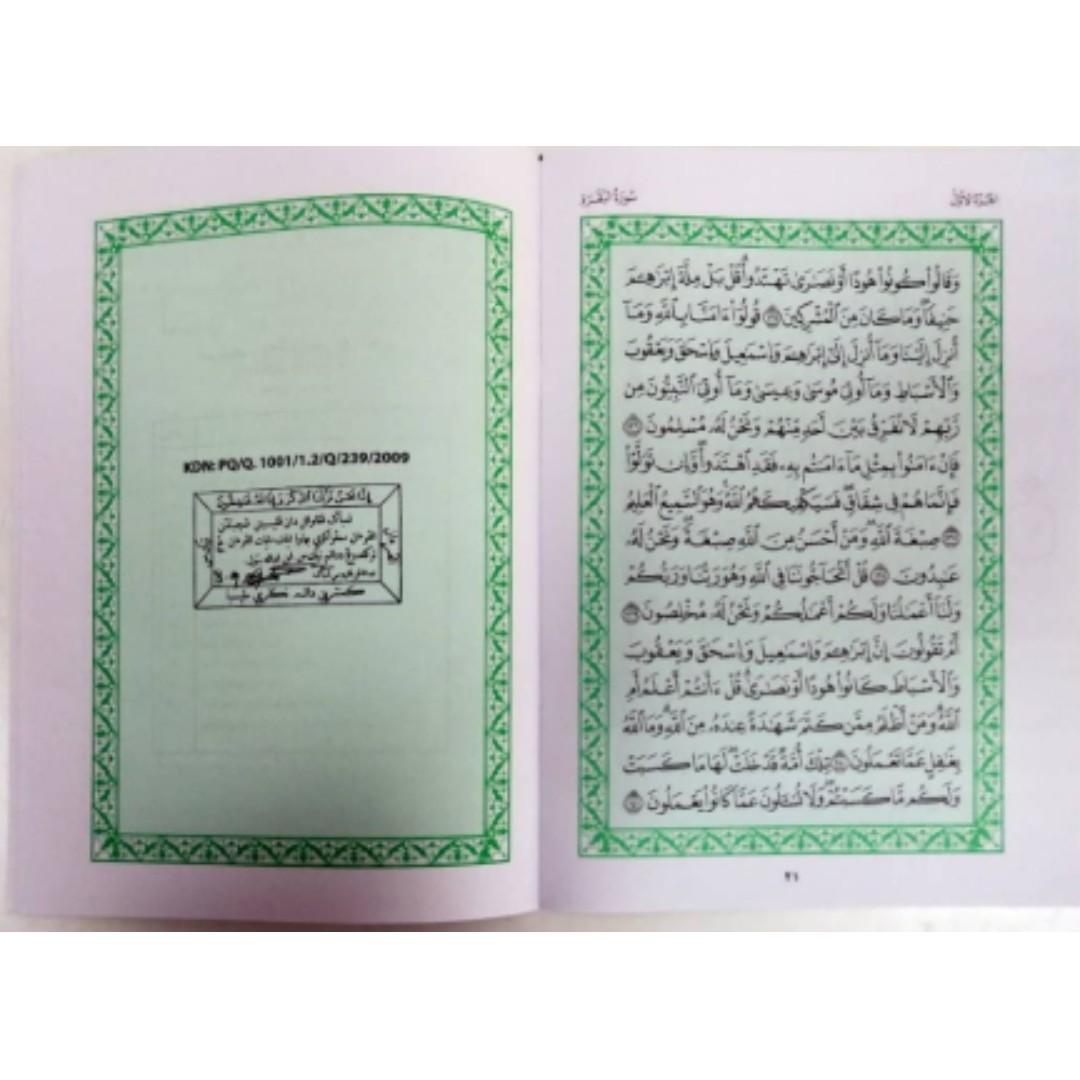 KDN: PQ/Q. 1001/1.2/Q/239/2009
إنا نحن نزلنا الذكر وإنا له لحافظون
سُورَةُ البَقَرَةِ
الجُزءُ الأوَّل
وَقَالُوا۟ كُونُوا۟ هُودًا أَوْ نَصَٰرَىٰ تَهْتَدُوا۟ قُلْ بَلْ مِلَّةَ إِبْرَٰهِـۧمَ
حَنِيفًا وَمَا كَانَ مِنَ ٱلْمُشْرِكِينَ ١٣٥ قُولُوٓا۟ ءَامَنَّا بِٱللَّهِ وَمَآ
أُنزِلَ إِلَيْنَا وَمَآ أُنزِلَ إِلَىٰٓ إِبْرَٰهِـۧمَ وَإِسْمَٰعِيلَ وَإِسْحَٰقَ وَيَعْقُوبَ
وَٱلْأَسْبَاطِ وَمَآ أُوتِىَ مُوسَىٰ وَعِيسَىٰ وَمَآ أُوتِىَ ٱلنَّبِيُّونَ مِن
رَّبِّهِمْ لَا نُفَرِّقُ بَيْنَ أَحَدٍ مِّنْهُمْ وَنَحْنُ لَهُۥ مُسْلِمُونَ ١٣٦
فَإِنْ ءَامَنُوا۟ بِمِثْلِ مَآ ءَامَنتُم بِهِۦ فَقَدِ ٱهْتَدَوا۟ وَّإِن تَوَلَّوْا۟
فَإِنَّمَا هُمْ فِى شِقَاقٍ فَسَيَكْفِيكَهُمُ ٱللَّهُ وَهُوَ ٱلسَّمِيعُ ٱلْعَلِيمُ
١٣٧ صِبْغَةَ ٱللَّهِ وَمَنْ أَحْسَنُ مِنَ ٱللَّهِ صِبْغَةً وَنَحْنُ لَهُۥ
عَٰبِدُونَ ١٣٨ قُلْ أَتُحَآجُّونَنَا فِى ٱللَّهِ وَهُوَ رَبُّنَا وَرَبُّكُمْ
وَلَنَآ أَعْمَٰلُنَا وَلَكُمْ أَعْمَٰلُكُمْ وَنَحْنُ لَهُۥ مُخْلِصُونَ ١٣٩
أَمْ تَقُولُونَ إِنَّ إِبْرَٰهِـۧمَ وَإِسْمَٰعِيلَ وَإِسْحَٰقَ وَيَعْقُوبَ
وَٱلْأَسْبَاطَ كَانُوا۟ هُودًا أَوْ نَصَٰرَىٰ قُلْ ءَأَنتُمْ أَعْلَمُ أَمِ
ٱللَّهُ وَمَنْ أَظْلَمُ مِمَّن كَتَمَ شَهَٰدَةً عِندَهُۥ مِنَ ٱللَّهِ وَمَا ٱللَّهُ
بِغَٰفِلٍ عَمَّا تَعْمَلُونَ ١٤٠ تِلْكَ أُمَّةٌ قَدْ خَلَتْ لَهَا مَا كَسَبَتْ
وَلَكُم مَّا كَسَبْتُمْ وَلَا تُسْـَٔلُونَ عَمَّا كَانُوا۟ يَعْمَلُونَ ١٤١
٢١